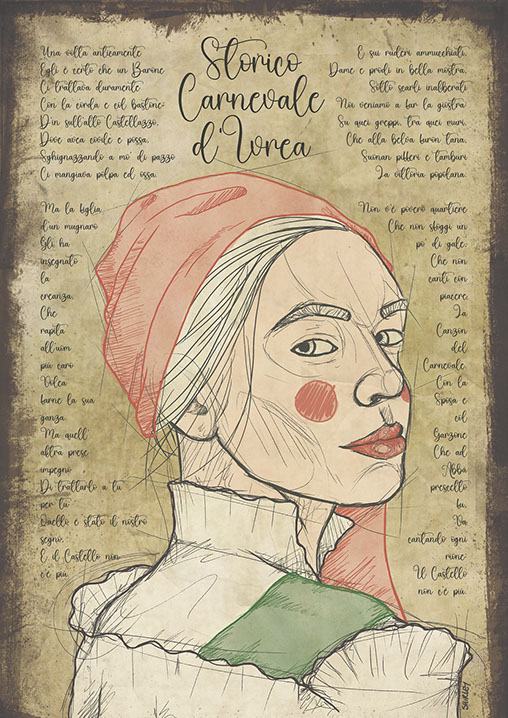 Storico
Carnevale
d'Ivrea
Una volta anticamente
Egli è certo che un Barone
Ci trattava duramente
Con la corda e col bastone:
D'in sull'alto Castellazzo,
Dove avea covile e possa,
Sghignazzando a mo' di pazzo
Ci mangiava polpa ed ossa.
Ma la figlia
d'un mugnaro
Gli ha
insegnato
la
creanza,
Che
rapita
all'uom
più caro
Volea
farne la sua
ganza.
Ma quell'
altra prese
impegno
Di trattarlo a tu
per tu
Quello è stato il nostro
segno,
E il Castello non
c'è più.
E sui ruderi ammucchiati,
Dame e prodi in bella mostra,
Sotto scarli inalberati
Noi veniamo a far la giostra
Su quei greppi, tra quei muri,
Che alla belva furon tana,
Suonan pifferi e tamburi
La vittoria popolana.
Non v'è povero quartiere
Che non sfoggi un
po' di gale,
Che non
canti con
piacere
La
Canzon
del
Carnevale
Con la
Sposa e
col
Garzone
Che ad
Abbà
prescelto
fu,
Va
cantando ogni
rione:
Il Castello
non c'è più.
SHIRLEY